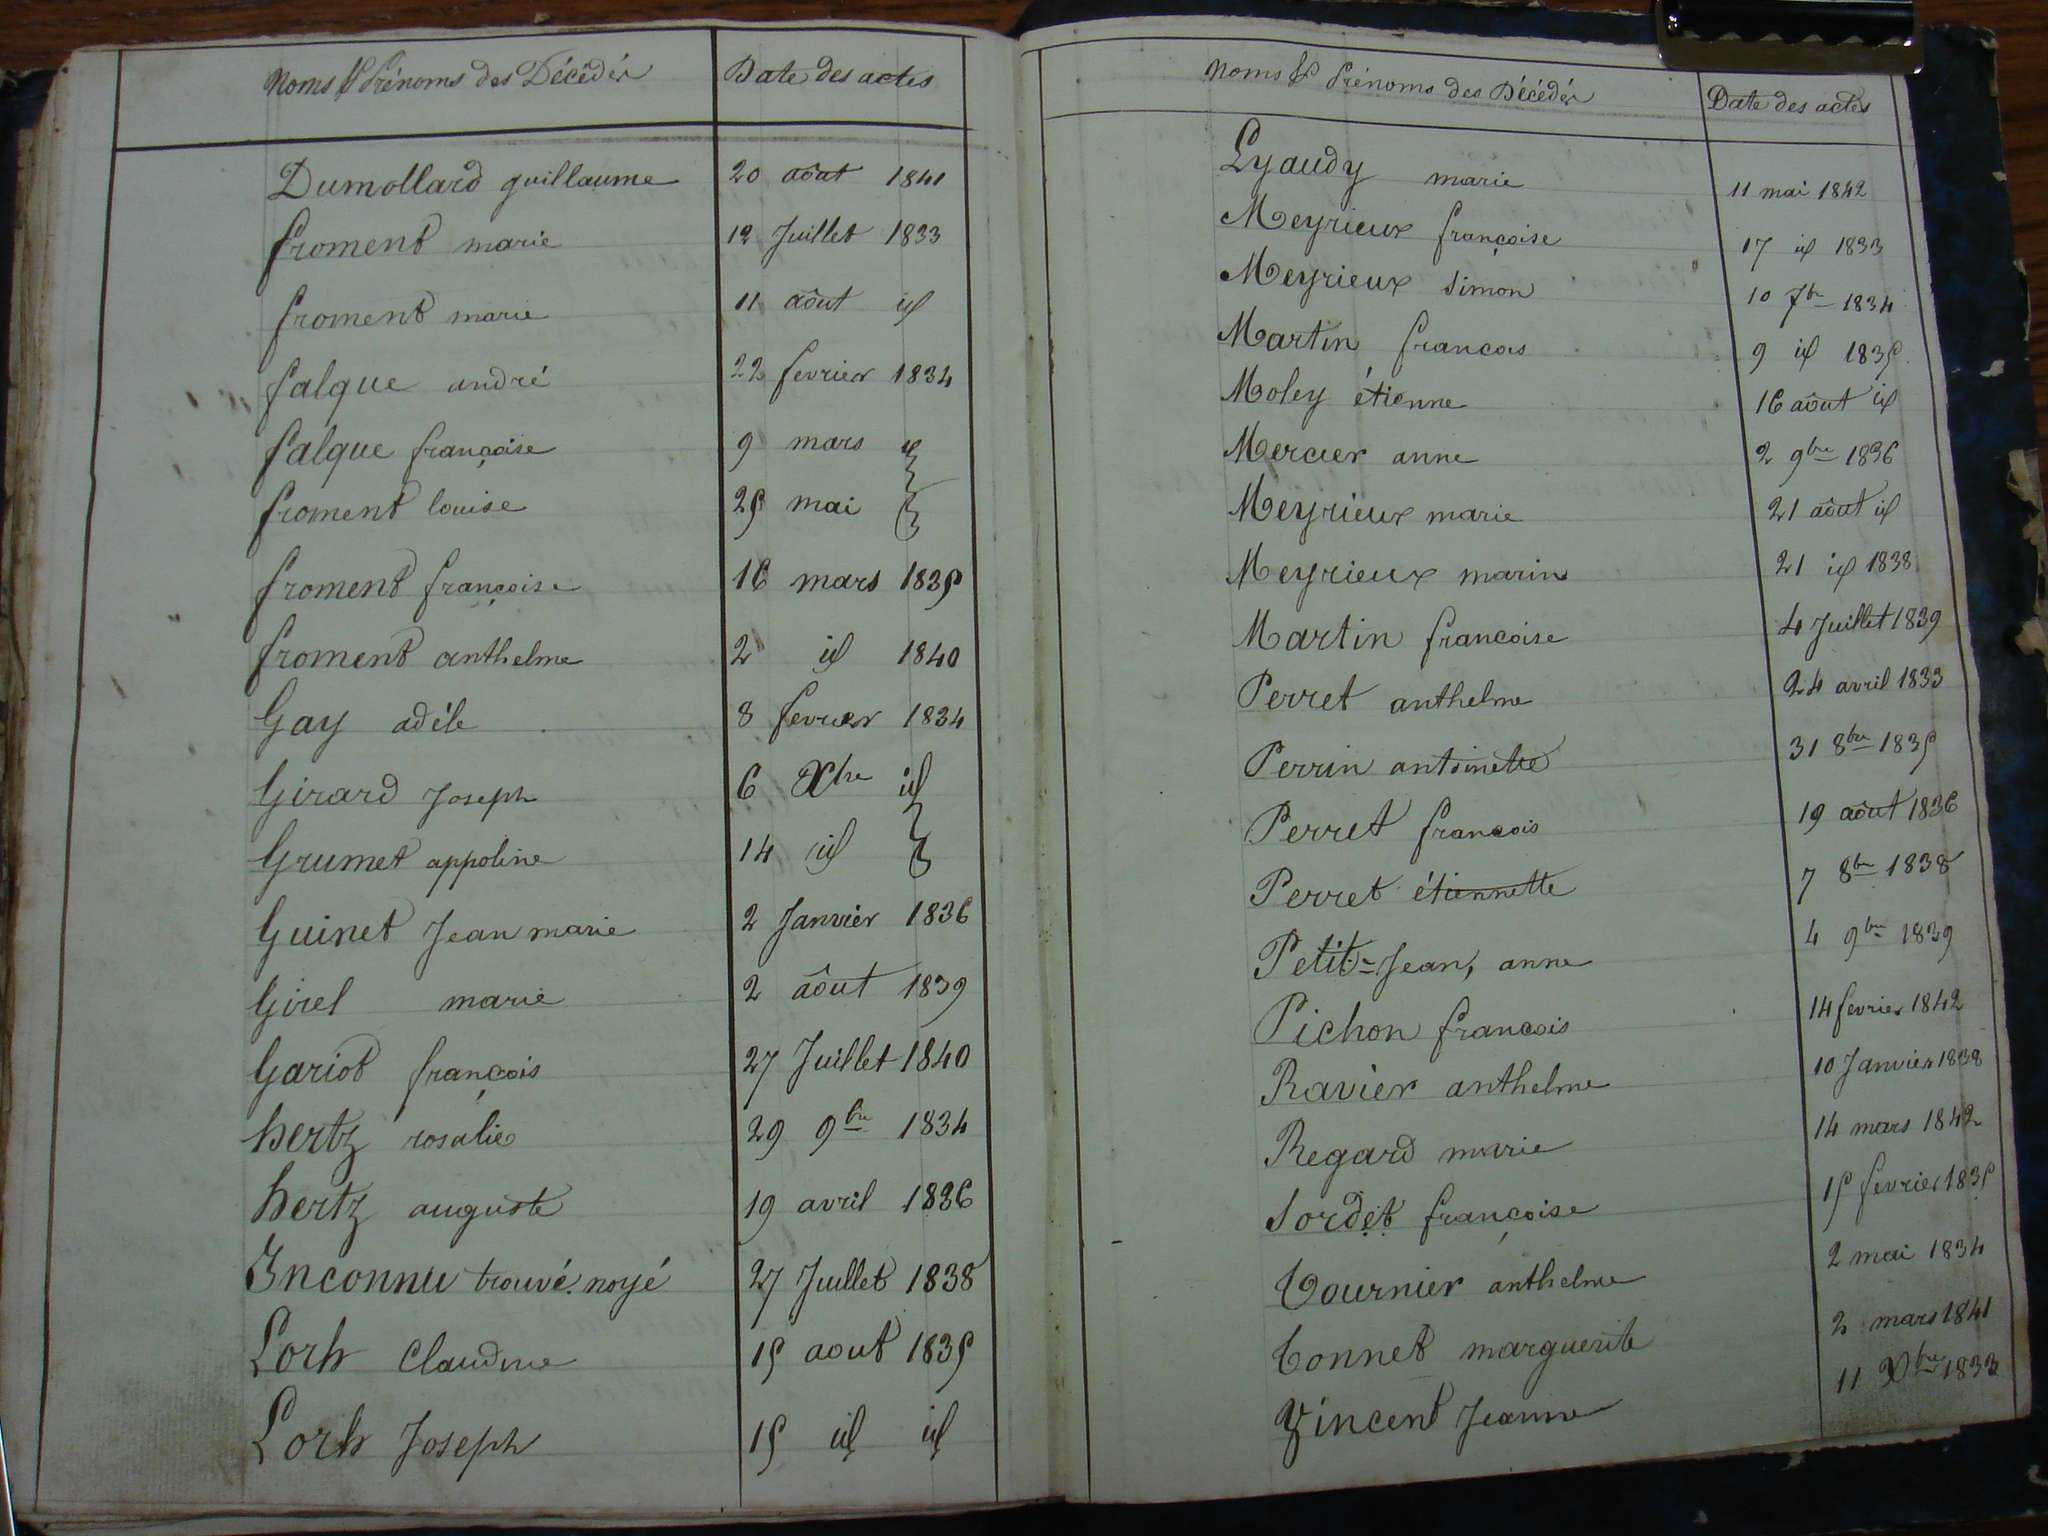 Noms & Prénoms des Décédés Date des actes
Dumollard guillaume 20 août 1841
froment marie 12 Juillet 1833
froment marie 11 août id
falque andré 22 fevrier 1834
falque françoise 9 mars id
froment louise 25 mai
froment françoise 16 mars 1835
froment anthelme 2 id 1840
Gay adèle 8 fevrier 1834
Girard Joseph 6 Xbre id
Grumet appoline 14 id
Guinet Jean marie 2 Janvier 1836
Girel marie 2 août 1839
Gariot françois 27 Juillet 1840
hertz rosalie 29 9bre 1834
hertz auguste 19 avril 1836
Inconnu trouvé noyé 27 Juillet 1838
Lorh Claudine 15 aout 1835
Lorh Joseph 15 id id
Noms & Prénoms des Décédés Date des actes
Lyaudy marie 11 mai 1842
Meyrieux françoise 17 id 1833
Meyrieux simon 10 7bre 1834
Martin francois 9 id 1835
Moley étienne 16 août id
Mercier anne 2 9bre 1836
Meyrieux marie 21 août id
Meyrieux marin 21 id 1838
Martin francoise 4 Juillet 1839
Perret anthelme 24 avril 1833
Perrin antoinette 31 8bre 1835
Perret francois 19 août 1836
Perret étiennette 7 8bre 1838
Petit=Jean, anne 4 9bre 1839
Pichon francois 14 fevrier 1842
Ravier anthelme 10 Janvier 1838
Regard marie 14 mars 1842
Sordet françoise 15 fevrier 1835
Tournier anthelme 2 mai 1834
Tonnet marguerite 2 mars 1841
Vincent Jeanne 11 Xbre 1833